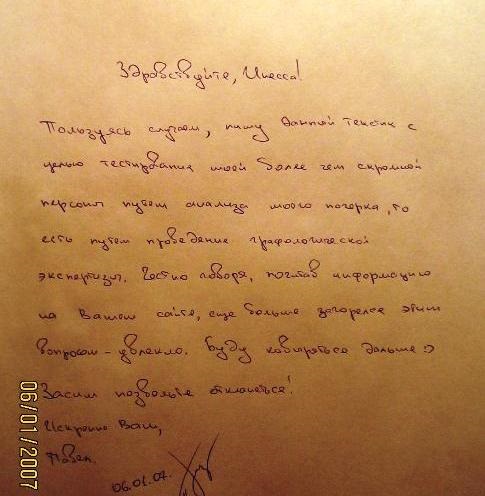 Здравствуйте, Инесса!
Пользуясь случаем, пишу данный текстик с
целью тестирования моей более чем скромной
персоны путем анализа моего почерка, то
есть путем проведение графологической
экспертизы. Честно говоря, почитав информацию
на Вашем сайте, еще больше загорелся этим
вопросом - увлекло. Буду ковыряться дальше :)
Засим позвольте откланяться!
Искренно Ваш,
Павел.
06.01.07.
06/01/2007